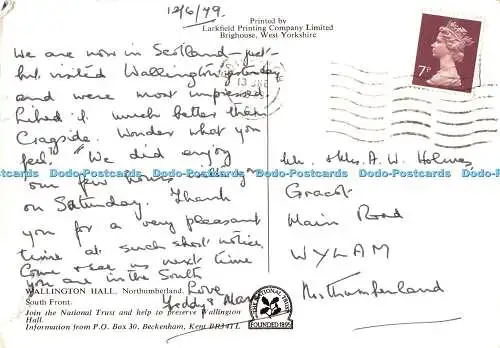 12/6/79.
Printed by
Larkfield Printing Company Limited
Brighouse, West Yorkshire
We are now in Scotland – just –
but visited Wallington yesterday
and were most impressed.
Liked it much better than
Cragside. Wonder what you
feel? We did enjoy
our few hours with you
on Saturday. Thank
you for a very pleasant
time at such short notice.
Come & see us next time
you are in the South
Love
Freddy & Mary
7P
Mr. & Mrs. A. W. Holmes,
Gracot
Main Road
WYLAM
Northumberland
WALLINGTON HALL, Northumberland.
South Front.
Join the National Trust and help to preserve Wallington
Hall.
Information from P.O. Box 30, Beckenham, Kent BR34TL
THE NATIONAL TRUST
FOUNDED 1895
Dodo-Postcards Dodo-Postcards Dodo-Postcards Dodo-Postcards Dodo-Postcards